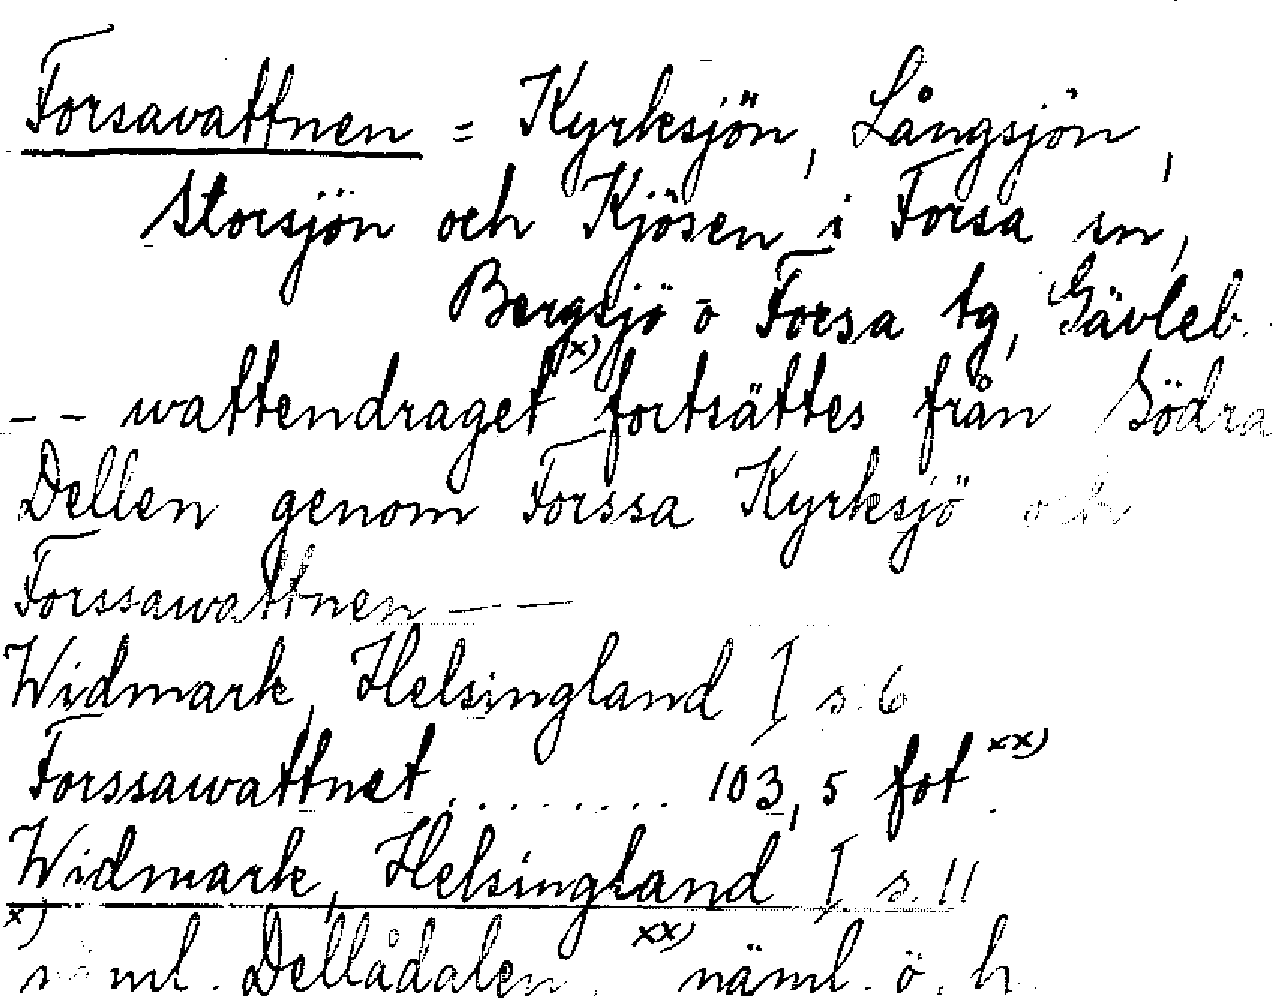 Forsavattnen = Kyrksjön, Långsjön,
Storsjön och Kjösen i Forsa sn,
Bergsjö o Forsa tg, Gävleb.
-- wattendraget x) fortsättes från Södra
Dellen genom Forssa Kyrksjö och
Forssawattnen — —
Widmark, Helsingland I s. 6
Forssawattnet ........ 103,5 fot xx).
Widmark, Helsingland I s. 11
x) näml. Dellådalen. xx) näml. ö. h.